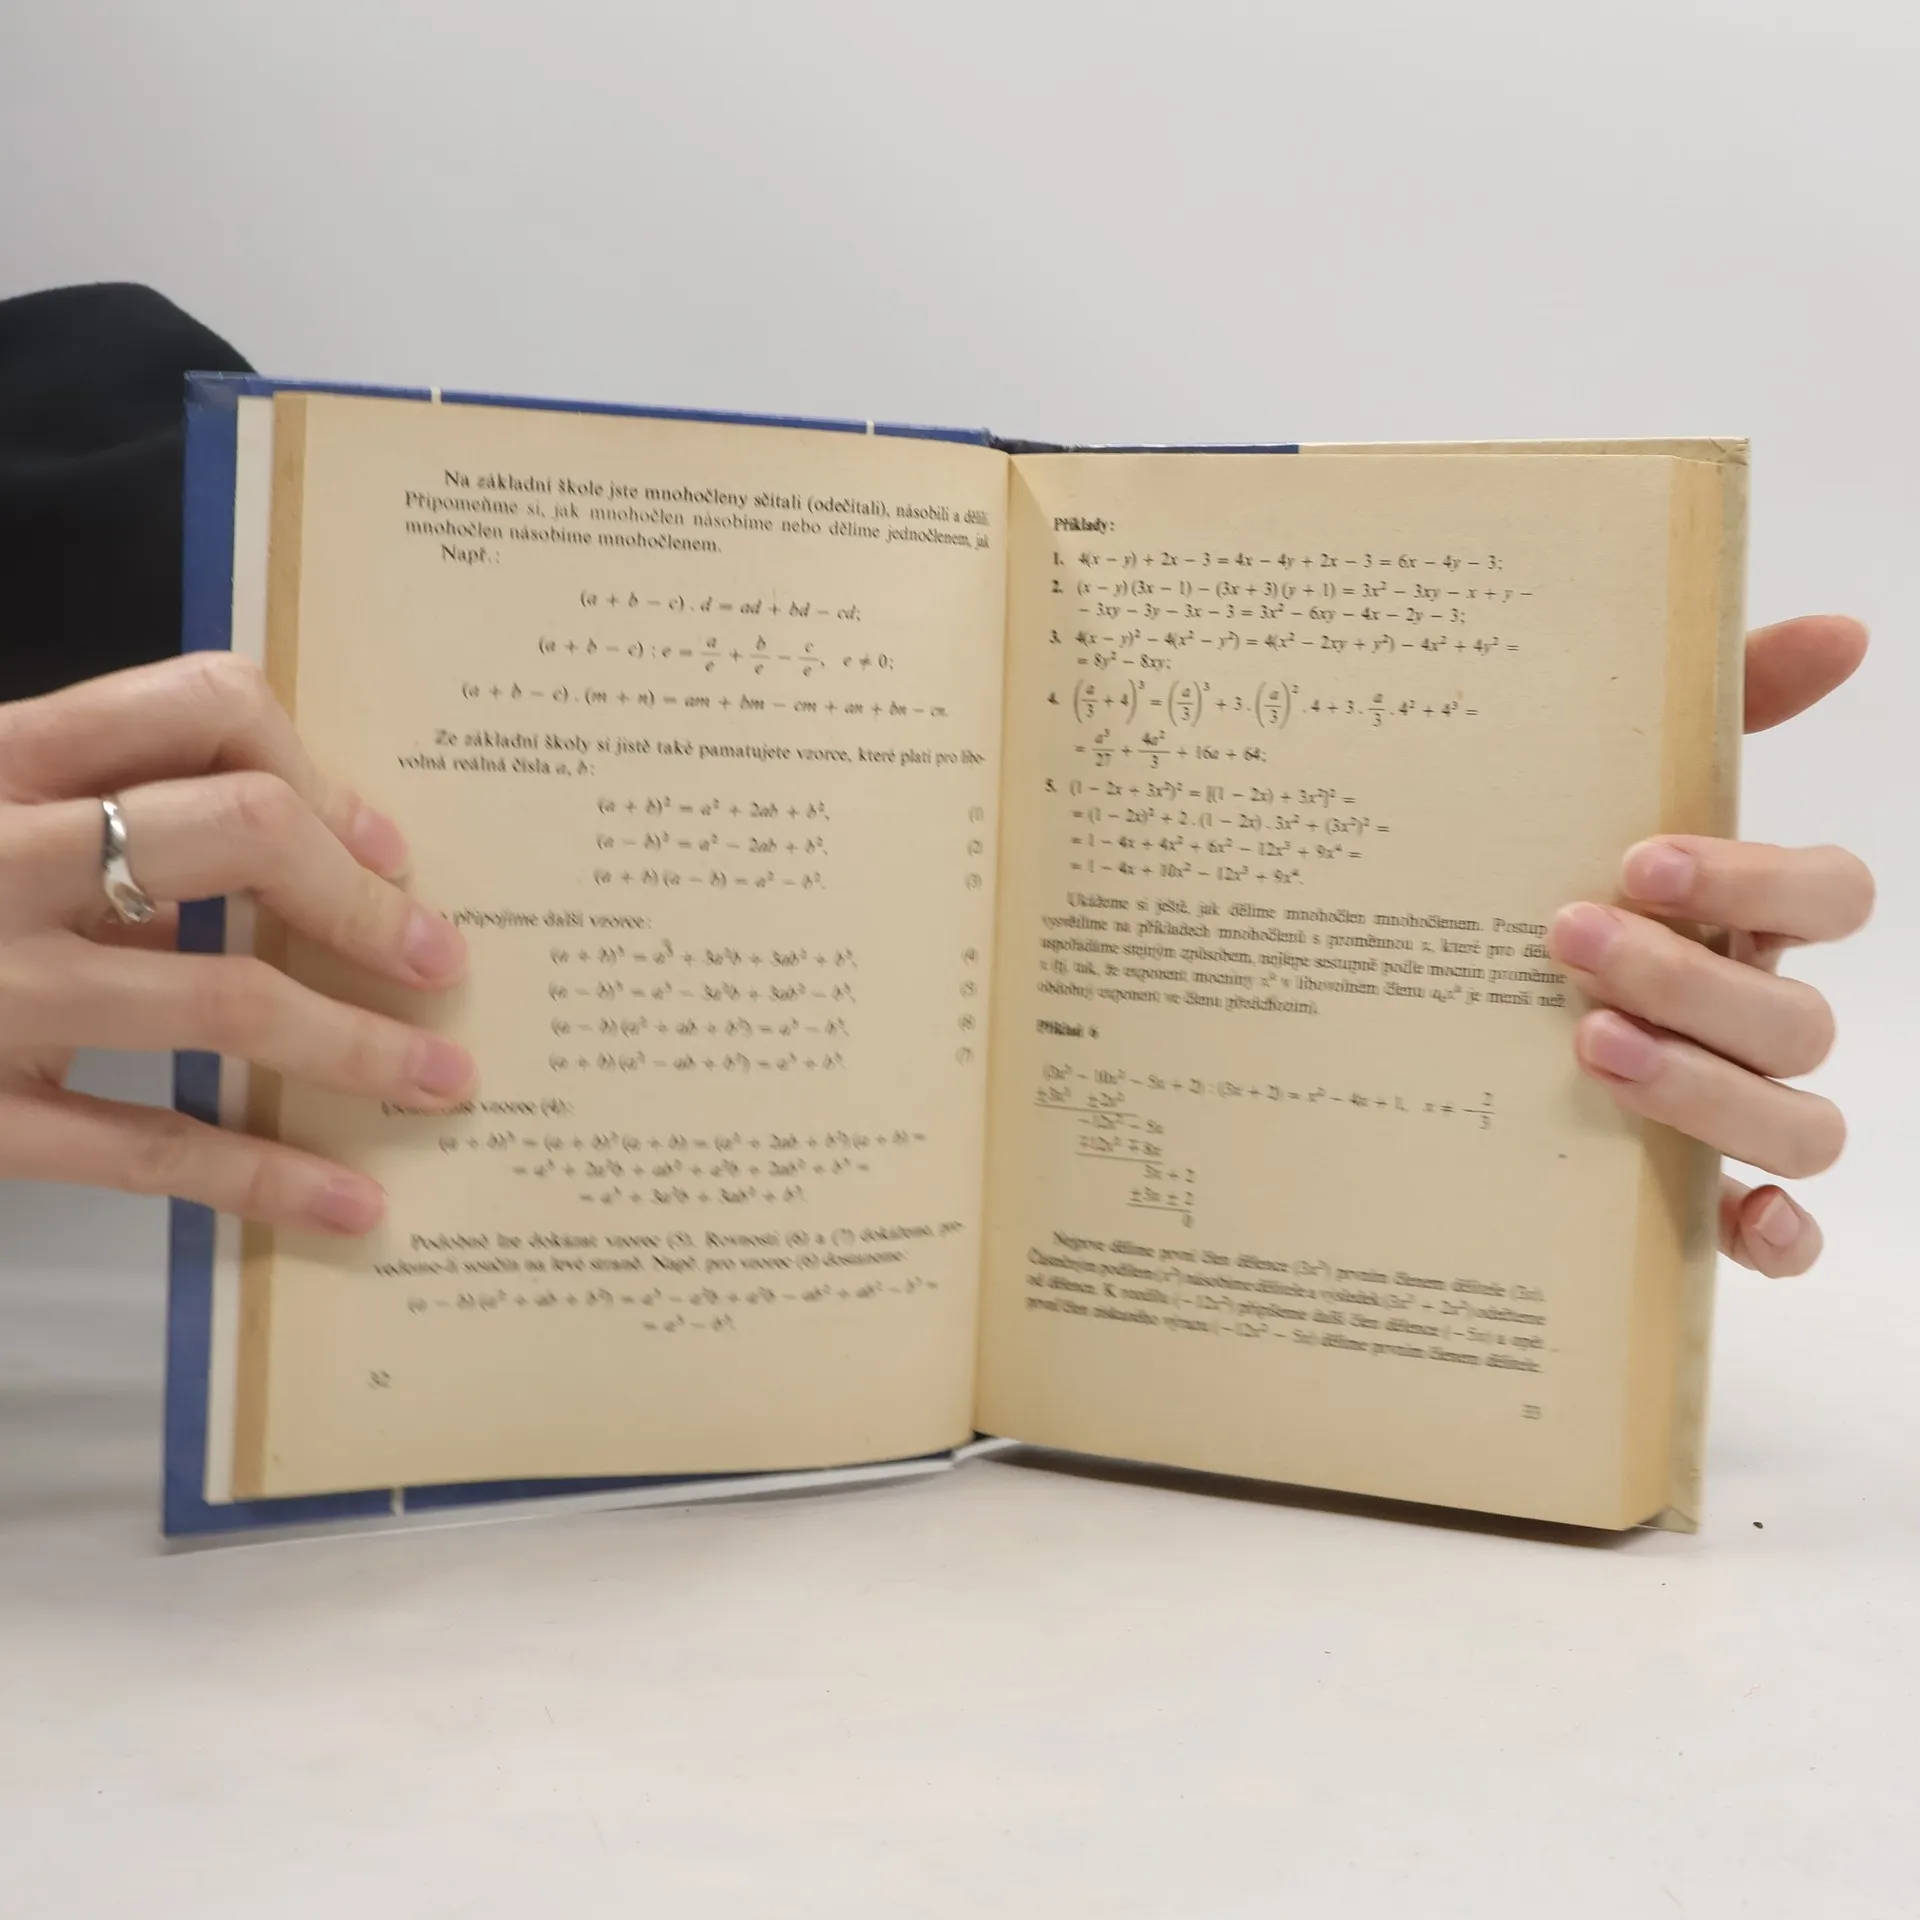 Na základní škole jste mnohočleny sčítali (odečítali), násobili a dělili.
Připomeňme si, jak mnohočlen násobíme nebo dělíme jednočlenem, jak
mnohočlen násobíme mnohočlenem.
Např.:
(a + b − c) . d = ad + bd − cd;
(a + b − c) : e = a/e + b/e − c/e, e ≠ 0;
(a + b − c) . (m + n) = am + bm − cm + an + bn − cn.
Ze základní školy si jistě také pamatujete vzorce, které platí pro libo-
volná reálná čísla a, b:
(a + b)² = a² + 2ab + b², (1)
(a − b)² = a² − 2ab + b², (2)
(a + b)(a − b) = a² − b². (3)
připojíme další vzorce:
(a + b)³ = a³ + 3a²b + 3ab² + b³, (4)
(a − b)³ = a³ − 3a²b + 3ab² − b³, (5)
(a − b)(a² + ab + b²) = a³ − b³, (6)
(a + b)(a² − ab + b²) = a³ + b³. (7)
vzorec (4):
(a + b)³ = (a + b)² (a + b) = (a² + 2ab + b²)(a + b) =
= a³ + 2a²b + ab² + a²b + 2ab² + b³ =
= a³ + 3a²b + 3ab² + b³.
Podobně lze dokázat vzorec (5). Rovnosti (6) a (7) dokážeme, pro-
vedeme-li součin na levé straně. Např. pro vzorec (6) dostaneme:
(a − b)(a² + ab + b²) = a³ − a²b + a²b − ab² + ab² − b³ =
= a³ − b³.
32
Příklady:
1. 4(x − y) + 2x − 3 = 4x − 4y + 2x − 3 = 6x − 4y − 3;
2. (x − y)(3x − 1) − (3x + 3)(y + 1) = 3x² − 3xy − x + y −
− 3xy − 3y − 3x − 3 = 3x² − 6xy − 4x − 2y − 3;
3. 4(x − y)² − 4(x² − y²) = 4(x² − 2xy + y²) − 4x² + 4y² =
= 8y² − 8xy;
4. (a/3 + 4)³ = (a/3)³ + 3 . (a/3)² . 4 + 3 . a/3 . 4² + 4³ =
= a³/27 + 4a²/3 + 16a + 64;
5. (1 − 2x + 3x²)² = [(1 − 2x) + 3x²]² =
= (1 − 2x)² + 2 . (1 − 2x) . 3x² + (3x²)² =
= 1 − 4x + 4x² + 6x² − 12x³ + 9x⁴ =
= 1 − 4x + 10x² − 12x³ + 9x⁴.
Ukážeme si ještě, jak dělíme mnohočlen mnohočlenem. Postup
vysvětlíme na příkladech mnohočlenů s proměnnou x, které pro
uspořádáme stejným způsobem, nejlépe sestupně podle mocnin proměnné
x (tj. tak, že exponent mocniny xᵏ v libovolném členu aₖxᵏ je menší než
obdobný exponent ve členu předchozím).
Příklad 6
(3x³ − 10x² − 5x + 2) : (3x + 2) = x² − 4x + 1, x ≠ −2/3
±3x³ ±2x²
−12x² − 5x
∓12x² ∓ 8x
3x + 2
±3x ± 2
0
Nejprve dělíme první člen dělence (3x³) prvním členem dělitele (3x).
Částečným podílem (x²) násobíme dělitele a výsledek (3x³ + 2x²) odečteme
od dělence. K rozdílu (−12x²) připíšeme další člen dělence (−5x) a opět
první člen získaného výrazu (−12x² − 5x) dělíme prvním členem dělitele.
33